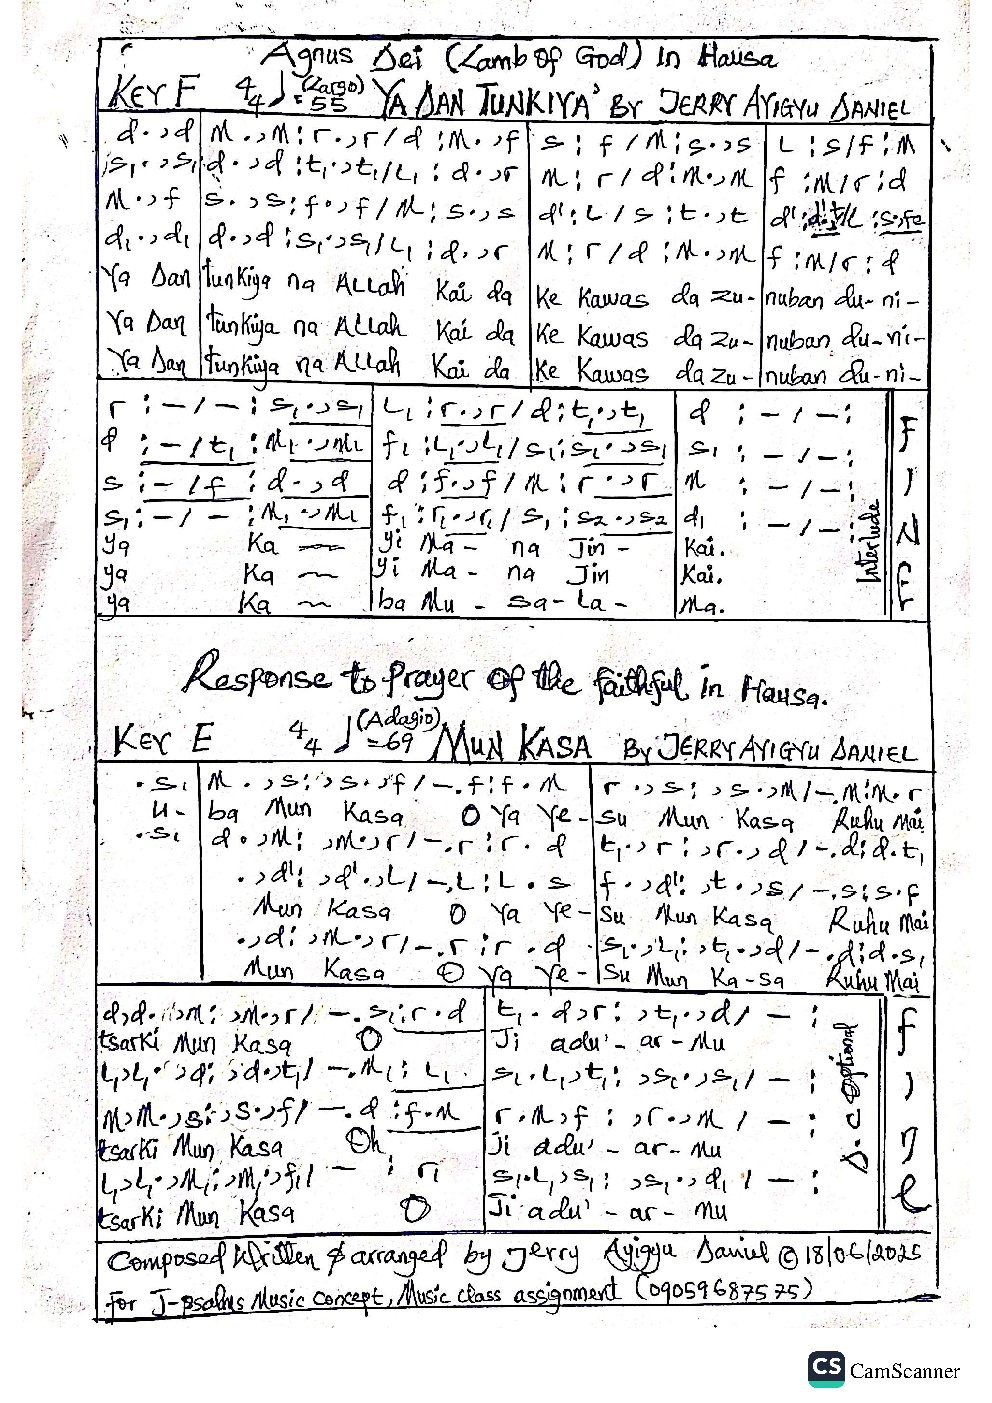 Agnus Dei (Lamb of God) In Hausa
KEY F 4/4 ♩=55 (Largo) YA DAN TUNKIYA' BY JERRY AYIGYU DANIEL
d.,d | M.,M:r.,r/d:M.,f | s:f/M:s.,s | L:s/f:M
s₁.,s₁ | d.,d:t₁.,t₁/L₁:d.,r | M:r/d:M.,M | f:M/r:d
M.,f | s.,s:f.,f/M:s.,s | d':L/s:t.,t | d': /L:s.fe
d₁.,d₁ | d.,d:s₁.,s₁/L₁:d.,r | M:r/d:M.,M | f:M/r:d
Ya Dan | tunkiya na Allah Kai da | Ke Kawas da zu- | nuban du-ni-
Ya Dan | tunkiya na Allah Kai da | Ke Kawas da zu- | nuban du-ni-
Ya Dan | tunkiya na Allah Kai da | Ke Kawas da zu- | nuban du-ni-
r:-/-:s₁.,s₁ | L₁:r.,r/d:t₁.,t₁ | d:-/-:
d:-/t₁:M₁.,M₁ | f₁:L₁.,L₁/s₁:s₁.,s₁ | s₁:-/-:
s:-/f:d.,d | d:f.,f/M:r.,r | M:-/-:
s₁:-/-:M₁.,M₁ | f₁:r₁.,r₁/s₁:s₂.,s₂ | d₁:-/-:
ya Ka | yi Ma- na Jin- | Kai.
ya Ka | yi Ma- na Jin | Kai.
ya Ka | ba Mu- sa-La- | Ma.
Interlude
FINE
Response to Prayer of the faithful in Hausa.
KEY E 4/4 ♩=69 (Adagio) MUN KASA BY JERRY AYIGYU DANIEL
.s₁ | M.,s:,s.,f/-.f:f.M | r.,s:,s.,M/-.M:M.r
u- | ba Mun Kasa O Ya Ye- | su Mun Kasa Ruhu Mai
.s₁ | d.,M:,M.,r/-.r:r.d | t₁.,r:,r.,d/-.d:d.t₁
.,d':,d'.,L/-.L:L.s | f.,d':,t.,s/-.s:s.f
Mun Kasa O Ya Ye- | su Mun Kasa Ruhu Mai
.,d:,M.,r/-.r:r.d | s₁.,L₁:,t₁.,d/-.d:d.s₁
Mun Kasa O Ya Ye- | su Mun Ka-sa Ruhu Mai
d,d.,M:,M.,r/-.s₁:r.d | t₁.d,r:,t₁.,d/-:
tsarki Mun Kasa O | Ji adu'-ar-Mu
L₁,L₁.,d:,d.,t₁/-.M₁:L₁ | s₁.L₁,t₁:,s₁.,s₁/-:
M,M.,s:,s.,f/-.d:f.M | r.M,f:,r.,M/-:
tsarki Mun Kasa Oh | Ji adu'-ar-Mu
L₁,L₁.,M₁:,M₁.,f₁/-:r₁ | s₁.L₁,s₁:,s₁.,d₁/-:
tsarki Mun Kasa O | Ji adu'-ar-Mu
D.C optional
fine
Composed written & arranged by Jerry Ayigyu Daniel © 18/06/2025
For J-psalms Music concept, Music class assignment (09059687575)
CS CamScanner